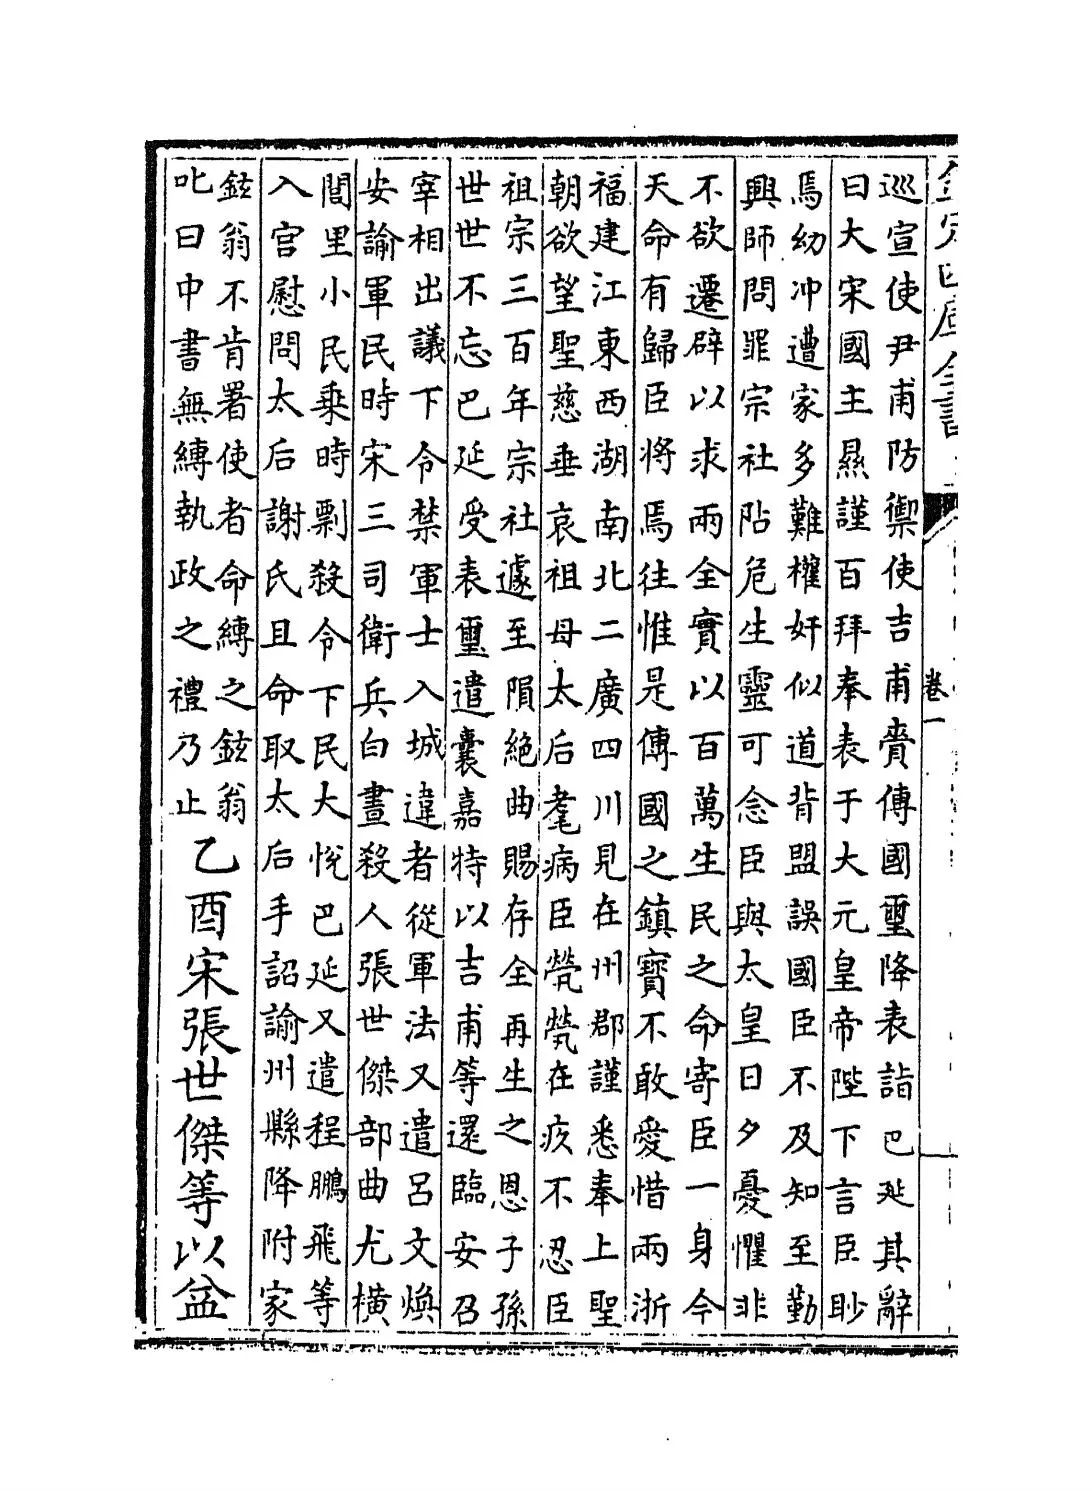 欽定四庫全書
卷一
巡宣使尹甫防禦使吉甫賫傳國璽降表詣巴延其辭
曰大宋國主㬎謹百拜奉表于大元皇帝陛下言臣眇
焉幼冲遭家多難權奸似道背盟誤國臣不及知至勤
興師問罪宗社阽危生靈可念臣與太皇日夕憂懼非
不欲遷辟以求兩全實以百萬生民之命寄臣一身今
天命有歸臣將焉往惟是傳國之鎮寶不敢愛惜兩浙
福建江東西湖南北二廣四川見在州郡謹悉奉上聖
朝欲望聖慈垂哀祖母太后耄病臣煢煢在疚不忍臣
祖宗三百年宗社遽至隕絕曲賜存全再生之恩子孫
世世不忘巴延受表璽遣囊嘉特以吉甫等還臨安召
宰相出議下令禁軍士入城違者從軍法又遣呂文煥
安諭軍民時宋三司衛兵白晝殺人張世傑部曲尤橫
閭里小民乘時剽殺令下民大悅巴延又遣程鵬飛等
入宮慰問太后謝氏且命取太后手詔諭州縣降附家
鉉翁不肯署使者命縛之鉉翁
叱曰中書無縛執政之禮乃止
乙酉宋張世傑等以益